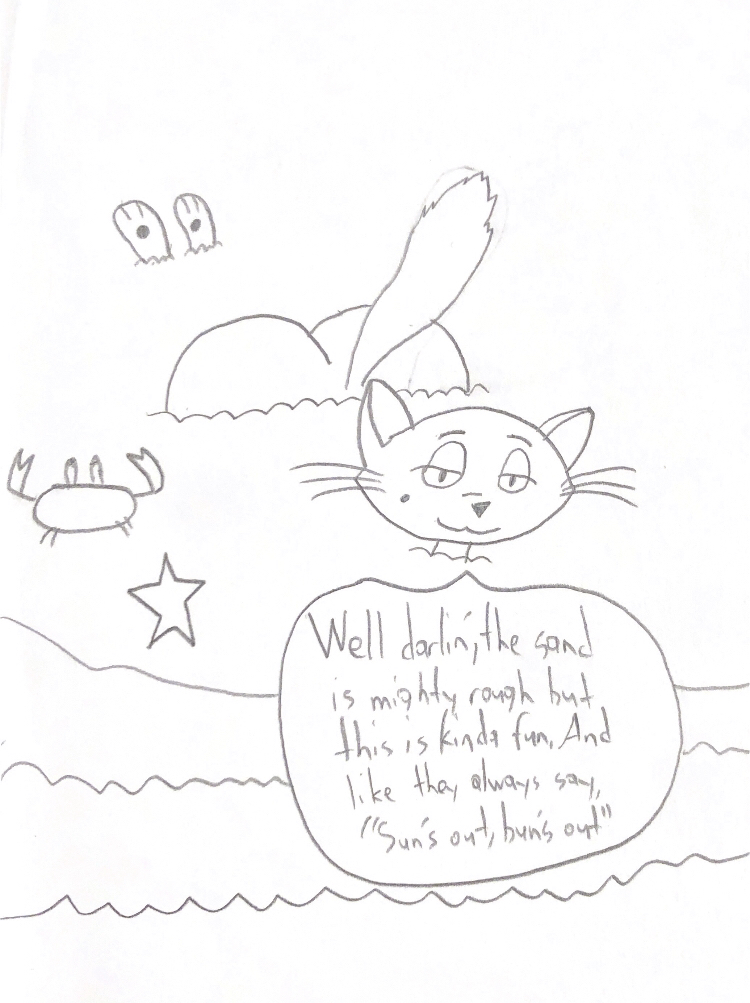 Well darlin', the sand
is mighty rough but
this is kinda fun. And
like they always say,
"Sun's out, bun's out"